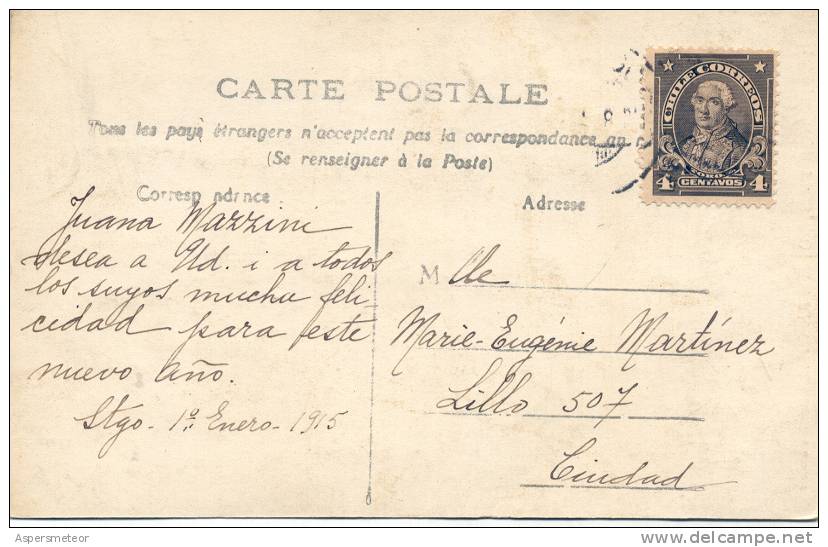 CARTE POSTALE
Tous les pays étrangers n'acceptent pas la correspondance au
(Se renseigner à la Poste)
Correspondance
Adresse
CHILE CORREOS
4 CENTAVOS 4
Juana Mazzini
desea a Ud. i a todos
los suyos mucha feli
cidad para este
nuevo año.
Stgo- 1º Enero- 1915
Mlle
Marie-Eugénie Martínez
Lillo 507
Ciudad
Aspersmeteor
delcampe.net